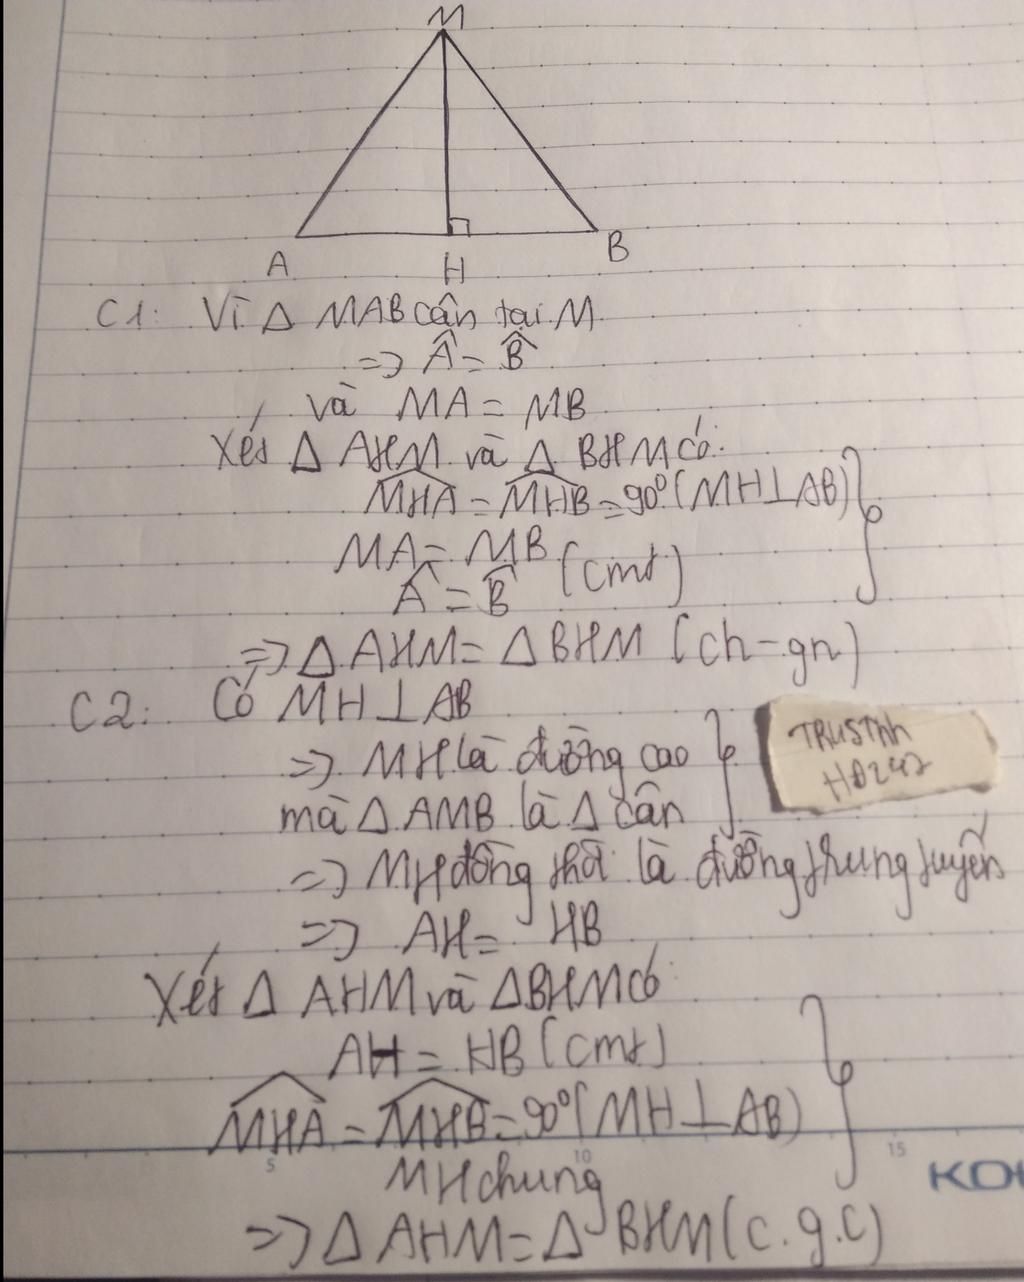 M
A
H
B
C1: Vì Δ MAB cân tại M
=> Â = B̂
và MA = MB
Xét Δ AHM và Δ BHM có:
MHA = MHB = 90° (MH⊥AB)
MA = MB
Â = B̂ (cmt)
=> Δ AHM = Δ BHM (ch-gn)
C2: Có MH⊥AB
=> MH là đường cao
mà Δ AMB là Δ cân
TRUSTnh
HĐ247
=> MH đồng thời là đường trung tuyến
=> AH = HB
Xét Δ AHM và ΔBHM có:
AH = HB (cmt)
MHA = MHB = 90° (MH⊥AB)
5 10 15
MH chung
=> Δ AHM = Δ BHM (c.g.c)